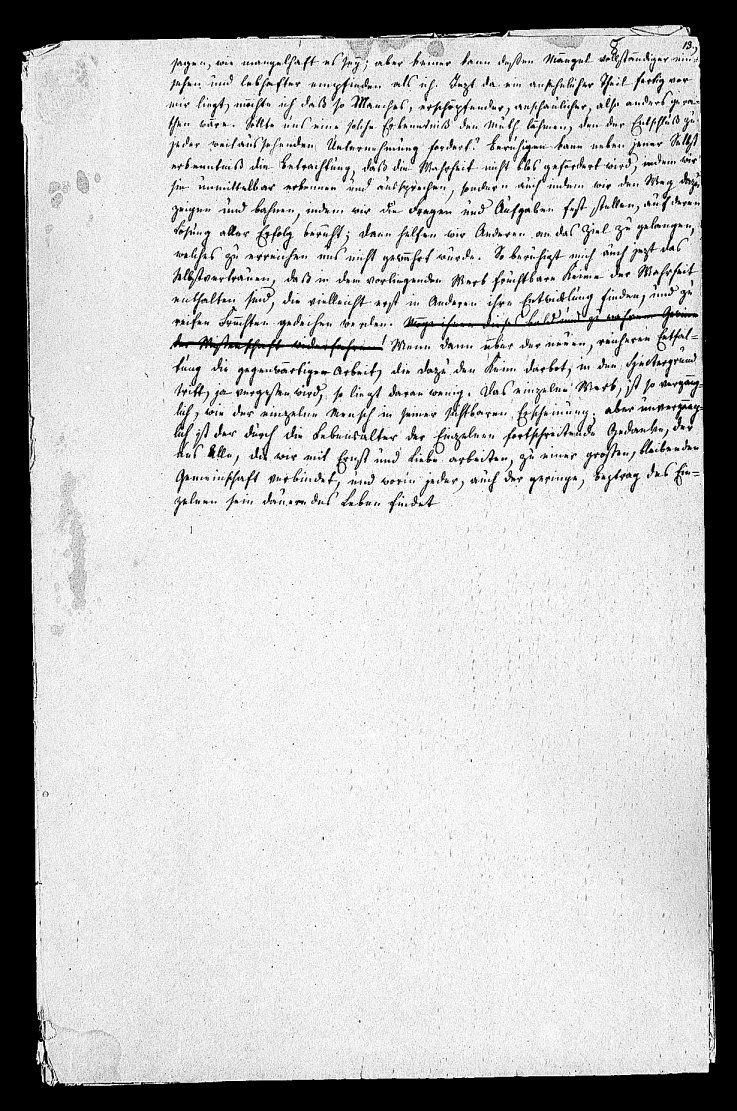 13.
sagen, wie mangelhaft es sey; aber keiner kann dessen Mängel vollständiger ein-
sehen und lebhafter empfinden als ich. Jezt da ein ansehnlicher Theil fertig vor
mir liegt, möchte ich daß so Manches, erschöpfender, anschaulicher, also anders gera-
then wäre. Sollte uns eine solche Erkenntniß den Muth lähmen, den der Entschluß zu
jeder weitaussehenden Unternehmung fordert? Beruhigen kann neben jener Selbst
erkenntniß die Betrachtung, daß die Wahrheit nicht blos gefördert wird, indem wir
sie unmittelbar erkennen und aussprechen, sondern auch indem wir den Weg dazu
zeigen und bahnen, indem wir die Fragen und Aufgaben fest stellen, auf deren
Lösung aller Erfolg beruht; dann helfen wir Anderen an das Ziel zu gelangen,
welches zu erreichen uns nicht gewährt wurde. So beruhigt mich auch jezt das
Selbstvertrauen, daß in dem vorliegenden Werk fruchtbare Keime der Wahrheit
enthalten sind, die vielleicht erst in Anderen ihre Entwicklung finden, und zu
reifen Früchten gedeihen werden.
Wenn dann über der neuen, reicheren Entfal-
tung die gegenwärtige Arbeit, die dazu den Keim darbot, in den Hintergrund
tritt, ja vergessen wird, so liegt daran wenig. Das einzelne Werk ist so vergäng-
lich, wie der einzelne Mensch in seiner sichtbaren Erscheinung; aber unvergäng-
lich ist der durch die Lebensalter der Einzelnen fortschreitende Gedanke, der
uns Alle, die wir mit Ernst und Liebe arbeiten, zu einer großen, bleibenden
Gemeinschaft verbindet, und worin jeder, auch der geringe, Beytrag des Ein-
zelnen sein dauerndes Leben findet